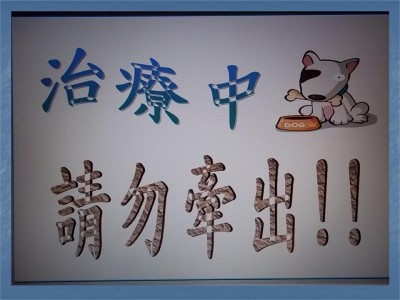 治療中
DOG
請勿牽出!!